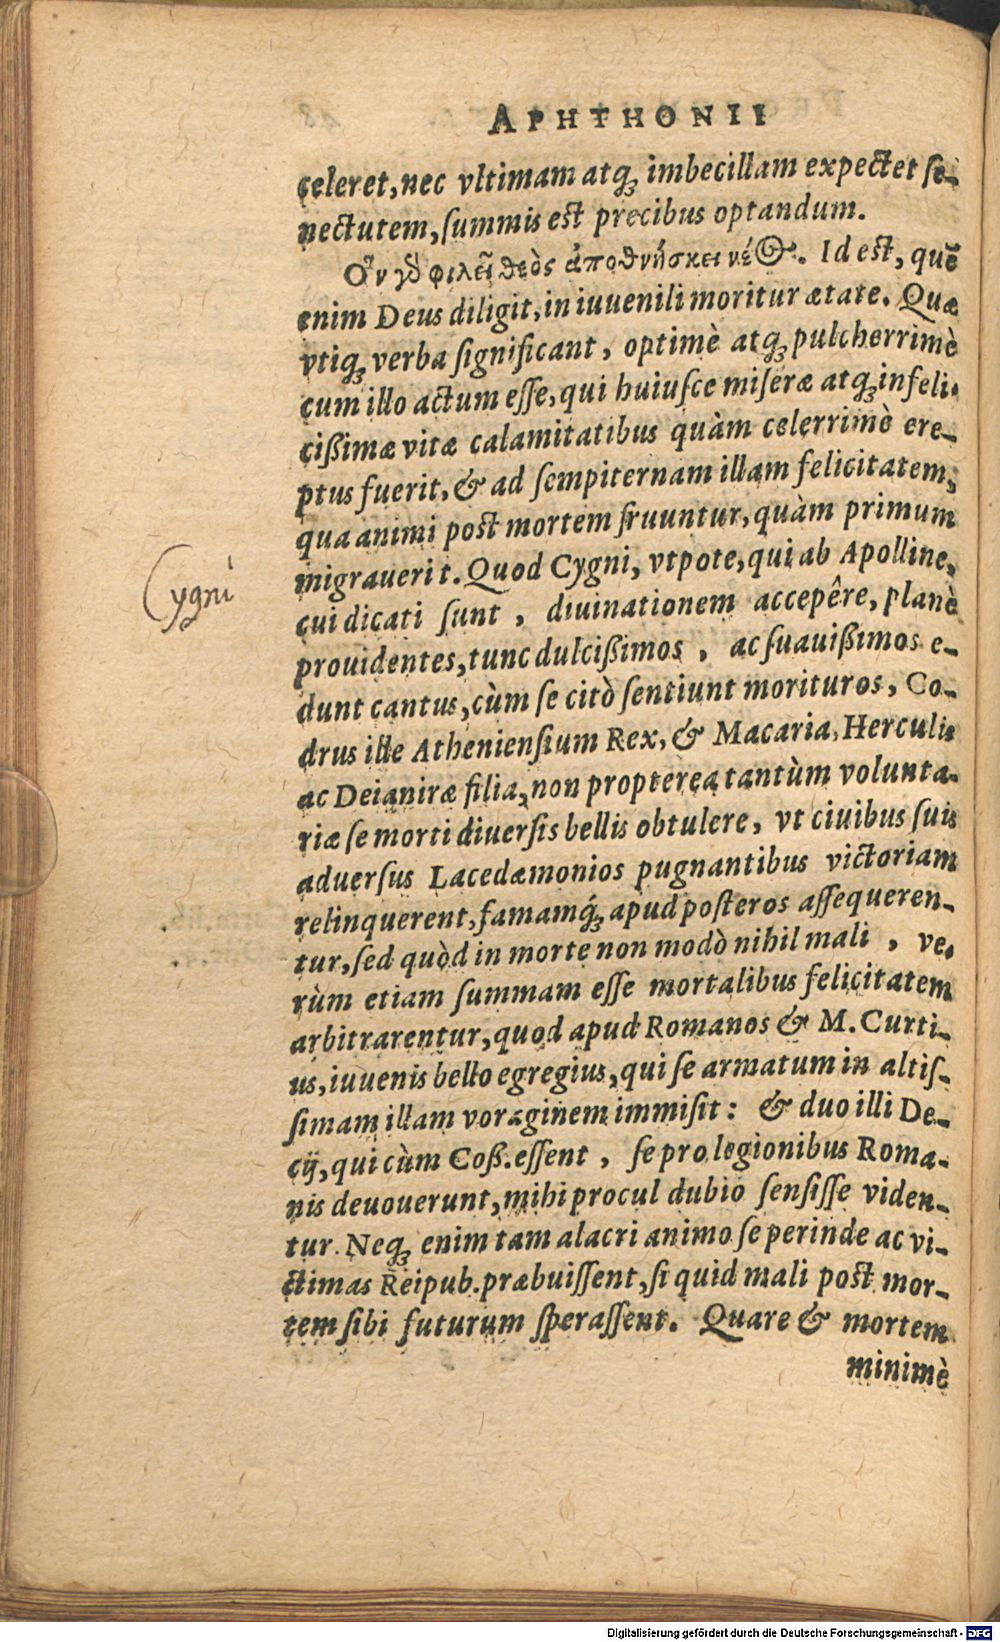 APHTHONII
celeret, nec vltimam atq́; imbecillam expectet se-
nectutem, summis est precibus optandum.
Ὃν γὰρ φιλεῖ θεὸς ἀποθνήσκει νέος. Id est, quẽ
enim Deus diligit, in iuuenili moritur ætate. Quæ
vtiq; verba significant, optimè atq; pulcherrimè
cum illo actum esse, qui huiusce miseræ atq; infeli-
cißimæ vitæ calamitatibus quàm celerrimè ere-
ptus fuerit, & ad sempiternam illam felicitatem,
qua animi post mortem fruuntur, quàm primum
migrauerit. Quod Cygni, vtpote, qui ab Apolline,
Cygni
cui dicati sunt, diuinationem accepêre, planè
prouidentes, tunc dulcißimos, ac suauißimos e-
dunt cantus, cùm se citò sentiunt morituros, Co-
drus ille Atheniensium Rex, & Macaria, Herculis
ac Deianiræ filia, non propterea tantùm volunta-
riæ se morti diuersis bellis obtulere, vt ciuibus suis
aduersus Lacedæmonios pugnantibus victoriam
relinquerent, famamq́; apud posteros assequeren-
tur, sed quòd in morte non modò nihil mali, ve-
rùm etiam summam esse mortalibus felicitatem
arbitrarentur, quod apud Romanos & M. Curti-
us, iuuenis bello egregius, qui se armatum in altis-
simam illam voraginem immisit: & duo illi De-
cij, qui cùm Coß. essent, se pro legionibus Roma-
nis deuouerunt, mihi procul dubio sensisse viden-
tur. Neq; enim tam alacri animo se perinde ac vi-
ctimas Reipub. præbuissent, si quid mali post mor-
tem sibi futurum sperassent. Quare & mortem
minimè
Digitalisierung gefördert durch die Deutsche Forschungsgemeinschaft - DFG